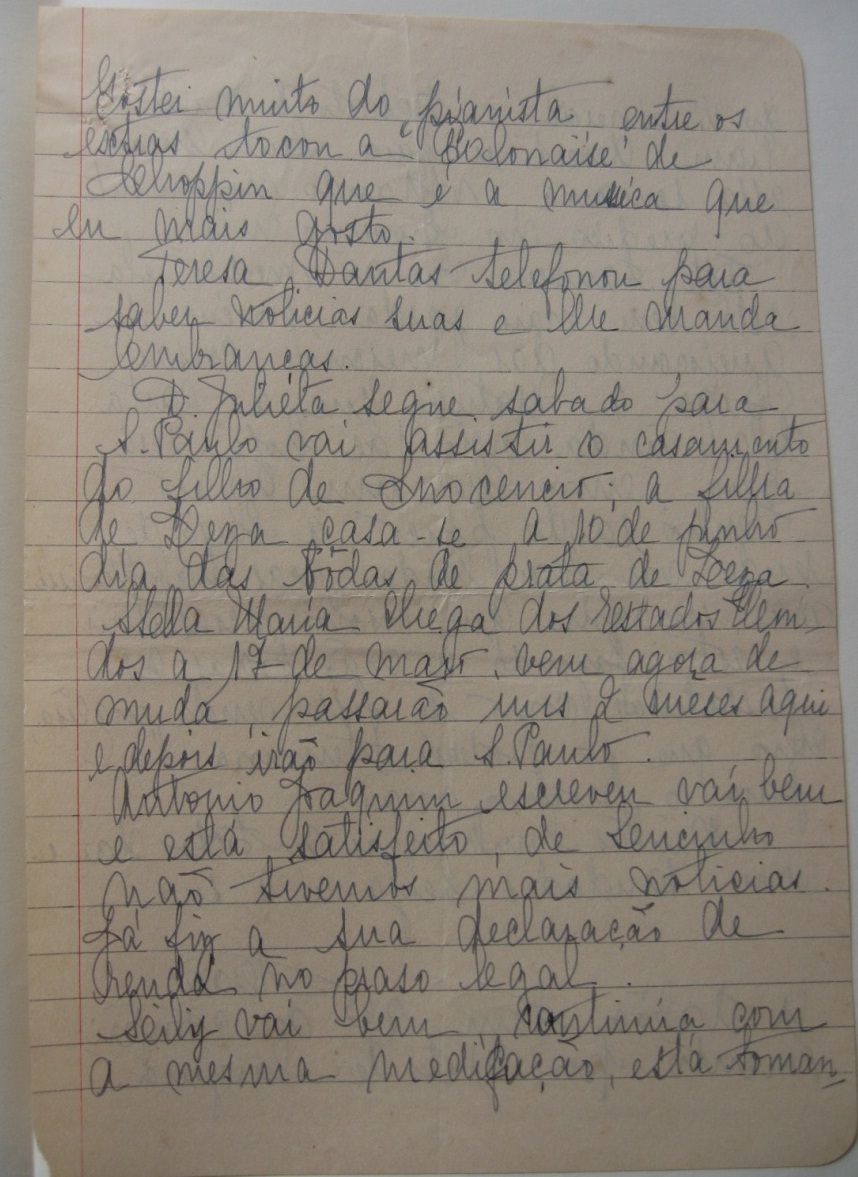 Gostei muito do pianista, entre os
extras tocou a "Polonaise" de
Choppin que é a musica que
eu mais gosto.
Teresa Dantas telefonou para
saber noticias suas e lhe manda
lembranças.
D. Juliéta segue sabado para
S. Paulo vai assistir o casamento
do filho de Inocencio; a filha
de casa-se a 10 de junho
dia das bôdas de prata de
Stella Maria chega dos Estados Uni-
dos a 17 de maio, vem agora de
muda, passarão uns 2 mêses aqui
e depois irão para S. Paulo.
Antonio Joaquim escreveu vai bem
e está satisfeito, de
não tivemos mais noticias.
Já fiz a sua declaração de
renda no praso legal.
vai bem, continúa com
a mesma medicação, está toman-